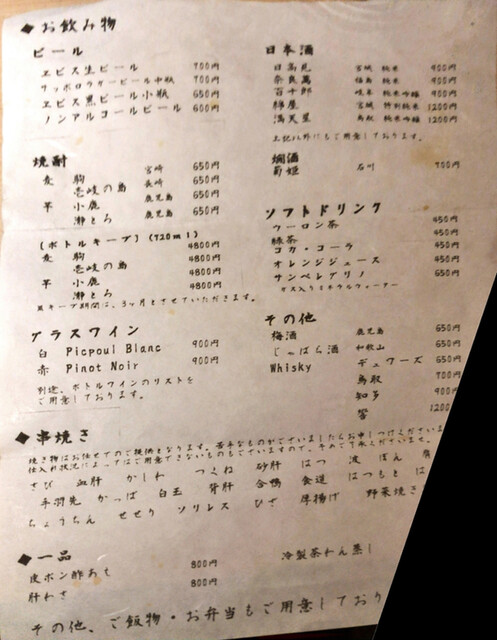 ◆お飲み物
ビール
ヱビス生ビール 700円
サッポロラガービール中瓶 700円
ヱビス黒ビール小瓶 650円
ノンアルコールビール 600円
焼酎
麦 駒 宮崎 650円
壱岐の島 長崎 650円
芋 小鹿 鹿児島 650円
灘とろ 鹿児島 650円
(ボトルキープ)(720ml)
麦 駒 4800円
壱岐の島 4800円
芋 小鹿 4800円
灘とろ 4800円
※キープ期間は、3ヶ月とさせていただきます。
グラスワイン
白 Picpoul Blanc 900円
赤 Pinot Noir 900円
別途、ボトルワインのリストを
ご用意しております。
日本酒
日高見 宮城 純米 900円
奈良萬 福島 純米 900円
百十郎 岐阜 純米吟醸 900円
綿屋 宮城 特別純米 1200円
満天星 鳥取 純米吟醸 1200円
上記以外にもご用意しております。
燗酒
菊姫 石川 700円
ソフトドリンク
ウーロン茶 450円
緑茶 450円
コカ・コーラ 450円
オレンジジュース 450円
サンペレグリノ 650円
ガス入りミネラルウォーター
その他
梅酒 鹿児島 650円
じゃばら酒 和歌山 650円
Whisky デュワーズ 650円
鳥取 700円
知多 900円
響 1200
◆串焼き
焼き物はお任せでのご提供となります。苦手なものがございましたらお申しつけください
仕入れ状況によってはご用意できないものもございますので、予めご了承くださいませ。
さび 血肝 かしわ つくね 砂肝 はつ 波 ぼん
手羽先 かっぱ 白玉 背肝 合鴨 食道 はつもと は
ちょうちん せせり ソリレス ひざ 厚揚げ 野菜焼き
◆一品
皮ポン酢あて 800円
肝わさ 800円
冷製茶わん蒸し
その他、ご飯物・お弁当もご用意しており